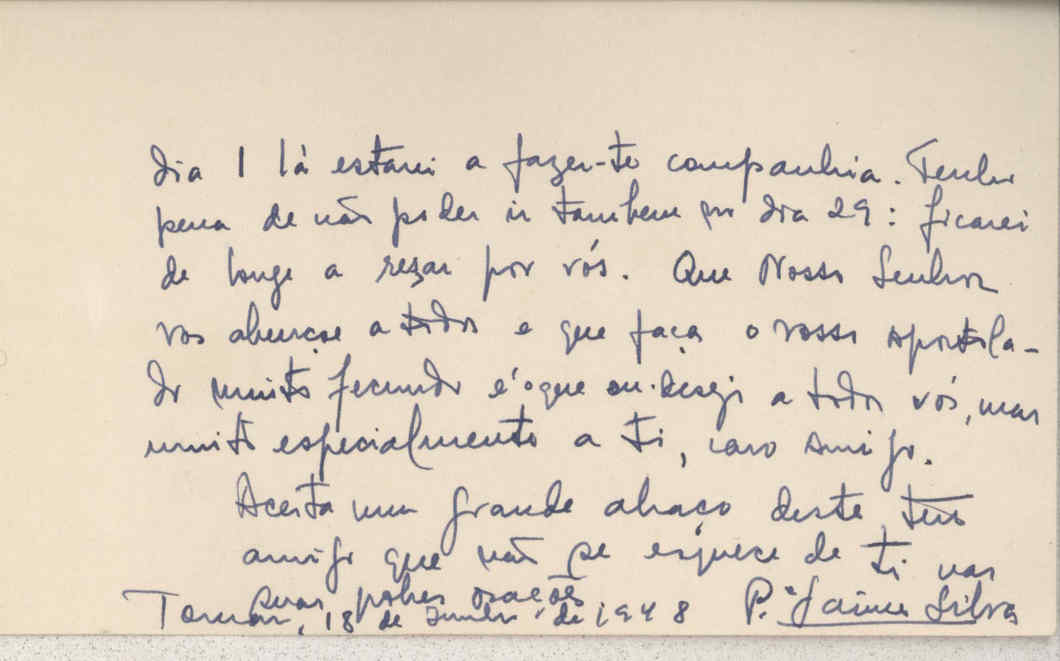 dia 1 lá estarei a fazer-te companhia. Tenho
pena de não poder ir tambem no dia 29: ficarei
de longe a rezar por vós. Que Nosso Senhor
vos abençoe a todos e que faça o vosso apostola-
do muito fecundo é o que eu desejo a todos vós, mas
muito especialmente a ti, caro amigo.
Aceita um grande abraço deste teu
amigo que não se esquece de ti nas
suas pobres orações
Tomar, 18 de Junho de 1948 P.e Jaime Silva